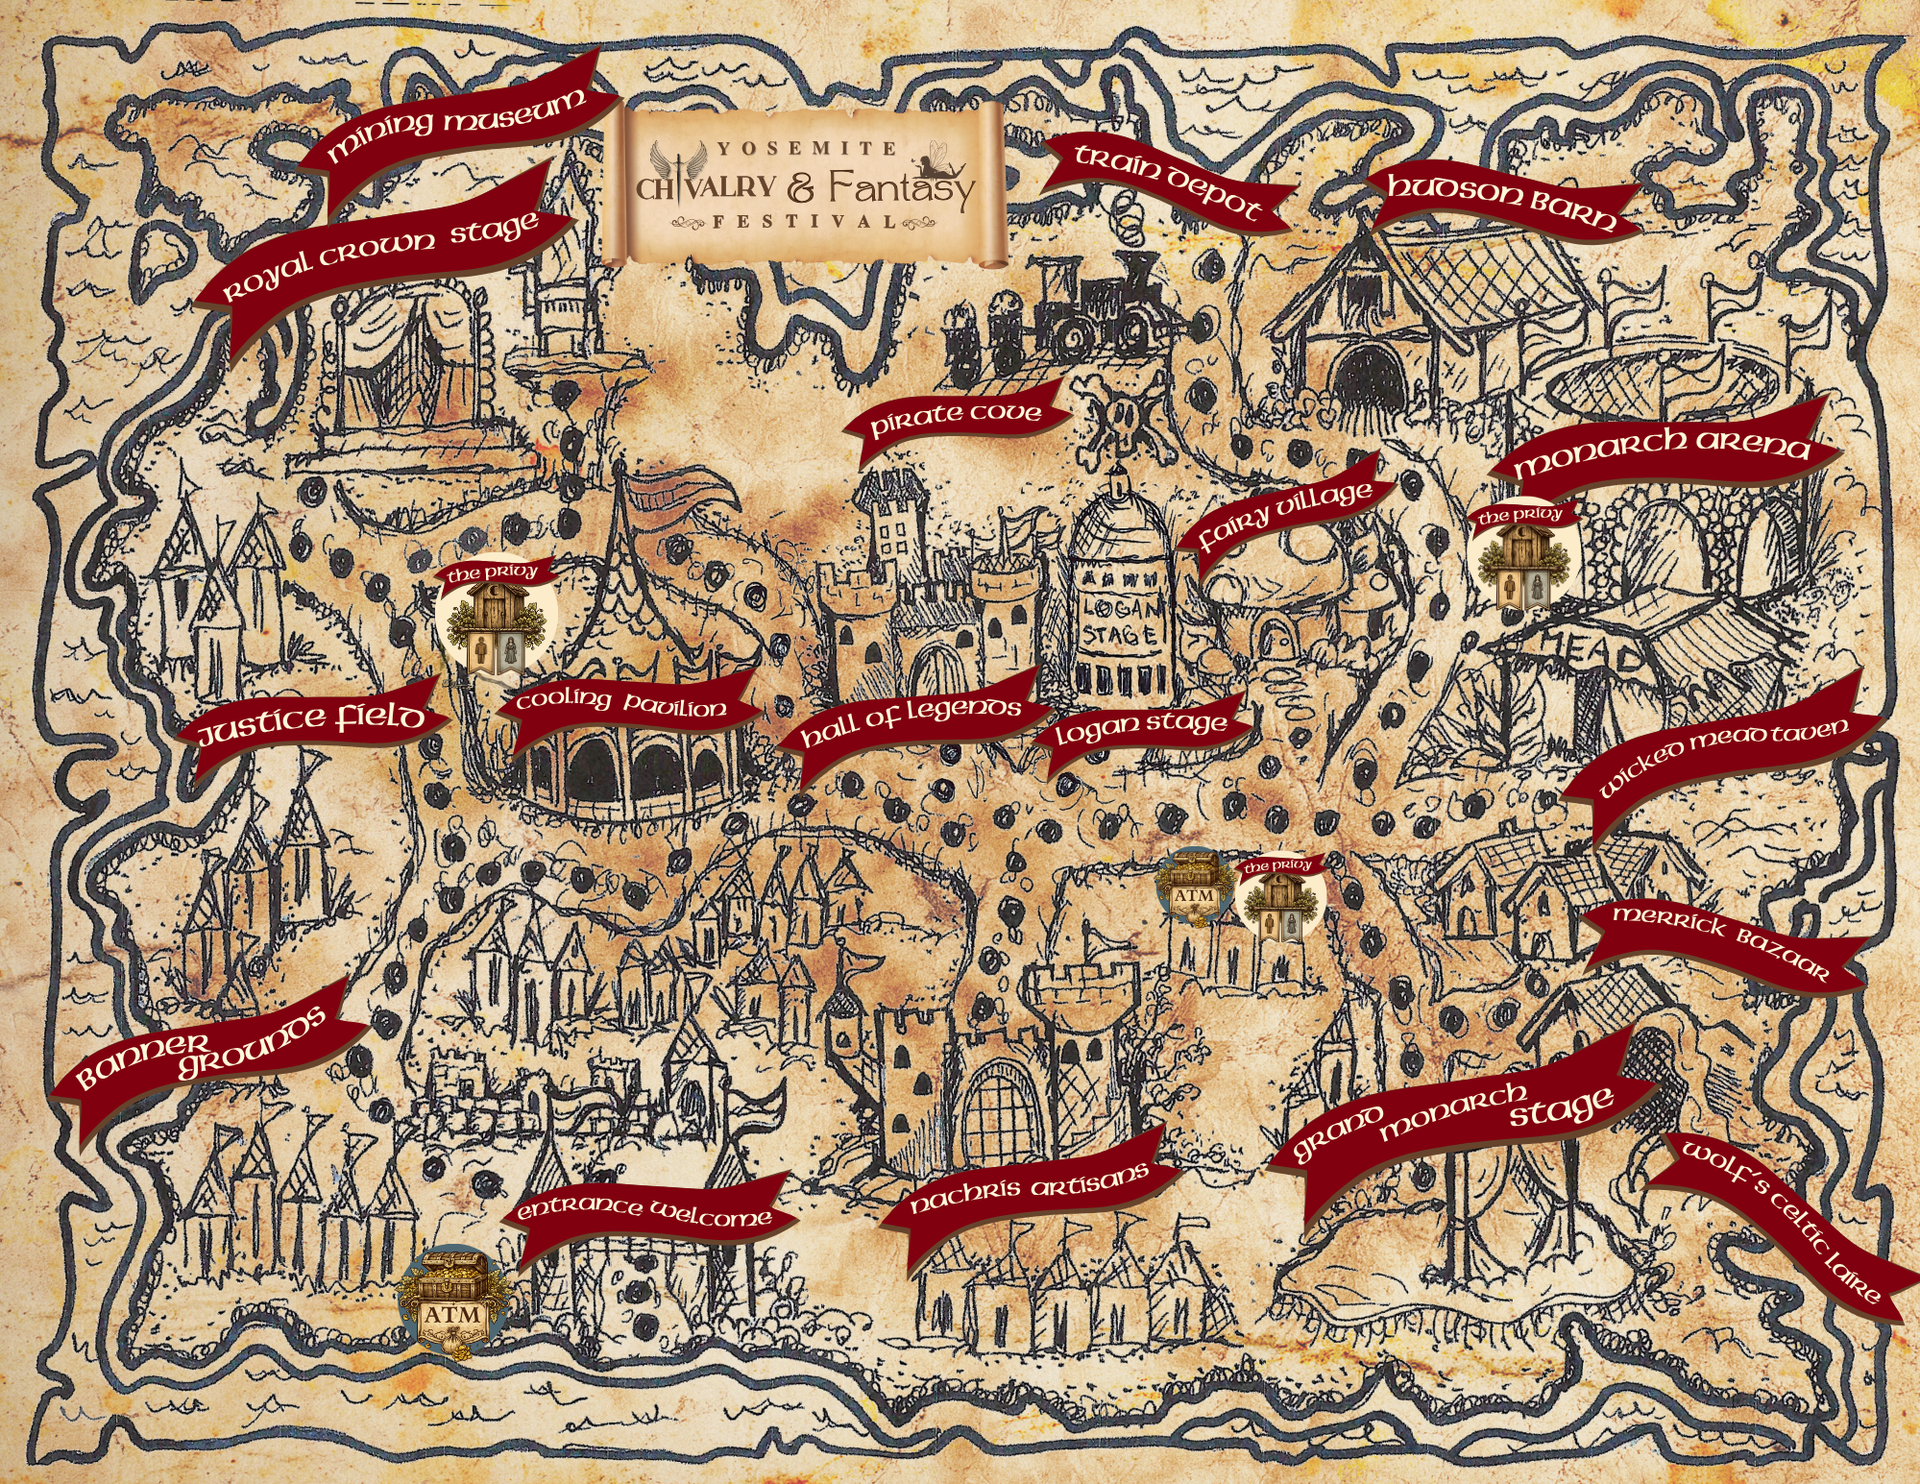 mining museum
YOSEMITE
CHIVALRY & Fantasy
FESTIVAL
train depot
hudson barn
royal crown stage
pirate cove
monarch arena
fairy village
the privy
the privy
LOGAN
STAGE
MEAD
justice field
cooling pavilion
hall of legends
logan stage
wicked mead taven
ATM
the privy
merrick bazaar
banner
grounds
grand
monarch
stage
entrance welcome
nachris artisans
wolf's celtic laire
ATM